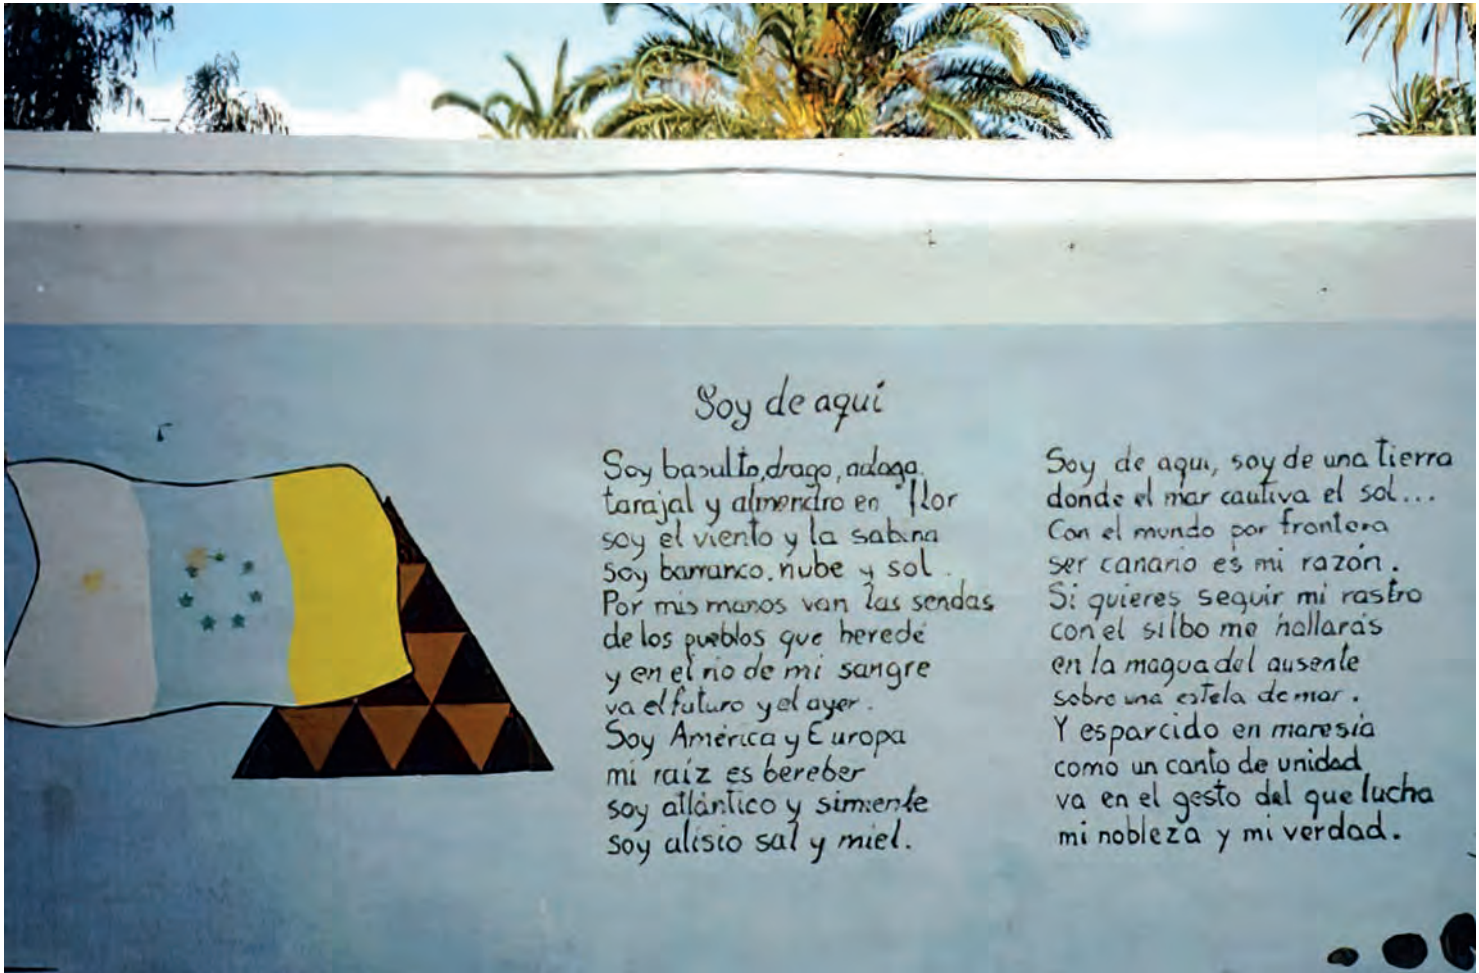 Soy de aquí
Soy basulto, drago, adaga,
tarajal y almendro en flor
soy el viento y la sabina
soy barranco, nube y sol.
Por mis manos van las sendas
de los pueblos que heredé
y en el río de mi sangre
va el futuro y el ayer.
Soy América y Europa
mi raíz es bereber
soy atlántico y simiente
soy alisio sal y miel.
Soy de aquí, soy de una tierra
donde el mar cautiva el sol...
Con el mundo por frontera
ser canario es mi razón.
Si quieres seguir mi rastro
con el silbo me hallarás
en la magua del ausente
sobre una estela de mar.
Y esparcido en maresía
como un canto de unidad
va en el gesto del que lucha
mi nobleza y mi verdad.